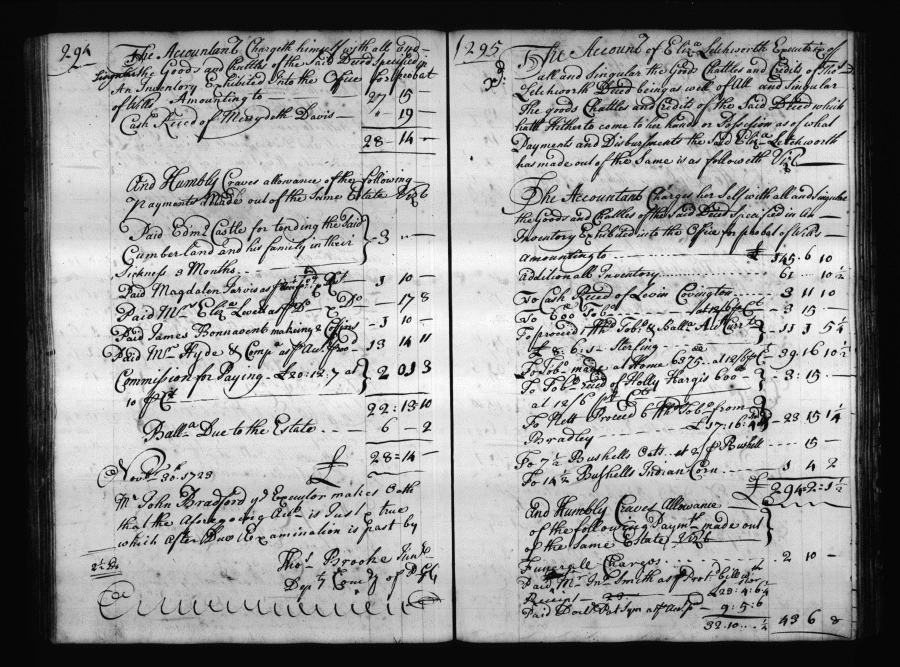 294
The Accountant Chargeth himself with all and
Singular the Goods and Chattles of the Said Deced Specifyed in
An Inventory Exhibited Into the Office for Probat
of Wills Amounting to — 27 15 —
Cash Reced of Merydeth Davis — " 19 —
28 - 14 —
And Humbly Craves allowance of the following
Payments Made out of the Same Estate Vizt
Paid Edmd Castle for tending the Said
Cumberland and his family in their
Sickness 3 Months .. } 3 .. —
Paid Magdalen Jarvis as 1 10 —
Paid Mrs Elizа Lowe as pr Do — 17 8
Paid James Bonnavent making 2 Coffins — 1 10 —
Paid Mr Hyde & Compa as pr Acct 13 14 11
Commission for Paying - £20:12:7 at
10 pr Ct } 2 01 3
22:13:10
Balla Due to the Estate .. — 6 — 2
£ 28 = 14 —
Novr 30th 1723
Mr John Bradford ye Executor makes Oath
that the Aforegoing Acct is Just & true
which after Due Examination is past by
Thos Brooke Junr
Depty Comry of P G Co
295
The Account of Eliza Letchworth Executrix of
all and Singular the Goods Chattles and Credits of Thos
Letchworth Deced being as well of All and Singular
The goods Chattles and Credits of the Said Deced which
hath Hitherto come to her hands or Possession as of what
Payments and Disbursments the Said Eliza Letchworth
has made out of the Same is as followeth Vizt
The Accountant Charges her Self with all and Singular
the Goods and Chattles of the said Deced Specified in An
Inventory Exhibited into the Office for probat of Wills
amounting to ... £ 145 6 10
additionall Inventory ... 61 .. 10 ½
To Cash Reced of Levin Covington ... 3 11 10
To 600 Tobo at 12/6 pr Ct — 3 15 —
To proceed of Tobo & Balla A
£ 8:6:1 Sterling } 11 1 5¼
To Tobo made at Home 6375 at 12/6 pr Ct 39 16 10½
To Tobo reced of Holly Hargis 600
at 12/6 pr Ct } 3 : 15
To Nett Proceed 6 hhds Tobo from
Bradley £17:16: } 23 15 ¼
To 7½ Bushells Oats at 2/ pr Bushell — 15 —
To 14½ Bushells Indian Corn 1 4 2
£ 294=2=1½
And Humbly Craves Allowance
of the following Paymts made out
of the Same Estate Vizt
Funerall Charges ... 2 10 —
Paid Mr Jno Smith as pr Prot bill &
Receipt £23:4:6½
Paid as pr Acct — 9:5:6
32.10 .. ½ 43 6 8